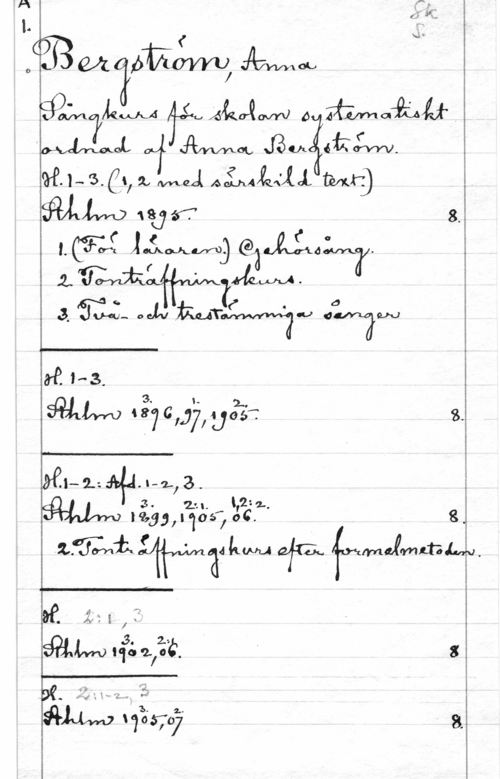 A
1.
Sk
S.
Bergström, Anna
Sångkurs för skolan systematiskt
ordnad af Anna Bergström.
H. 1-3. (1, 2 med särskild text:)
Sthlm 1895. 8.
1. (För läraren.) Gehörsång.
2. Tonträffningskurs.
3. Två- och trestämmiga sånger
H. 1-3.
3. 1. 2.
Sthlm 1896, 97, 1905. 8.
H. 1-2: Afd. 1-2, 3.
3. 2:1. 1,2:2.
Sthlm 1899, 1905, 06. 8.
2. Tonträffningskurs efter formelmetoden.
H. 2:1, 3
3. 2:1.
Sthlm 1902, 06. 8
H. 2:1-2, 3
3. 2.
Sthlm 1905, 07 8.